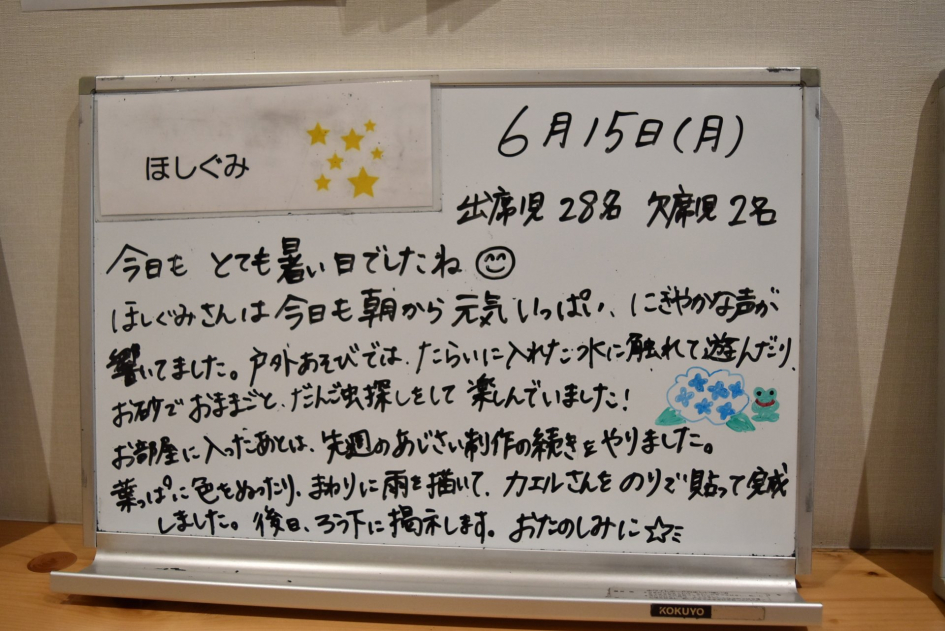 ほしぐみ
6月15日(月)
出席児 28名 欠席児 2名
今日も とても暑い日でしたね
ほしぐみさんは今日も朝から元気いっぱい、にぎやかな声が
響いてました。戸外あそびでは、たらいに入れた水に触れて遊んだり、
お砂でおままごと、だんご虫探しをして楽しんでいました!
お部屋に入ったあとは、先週のあじさい制作の続きをやりました。
葉っぱに色をぬったり、まわりに雨を描いて、カエルさんをのりで貼って完成
しました。後日、ろう下に掲示します。おたのしみに☆ミ
KOKUYO